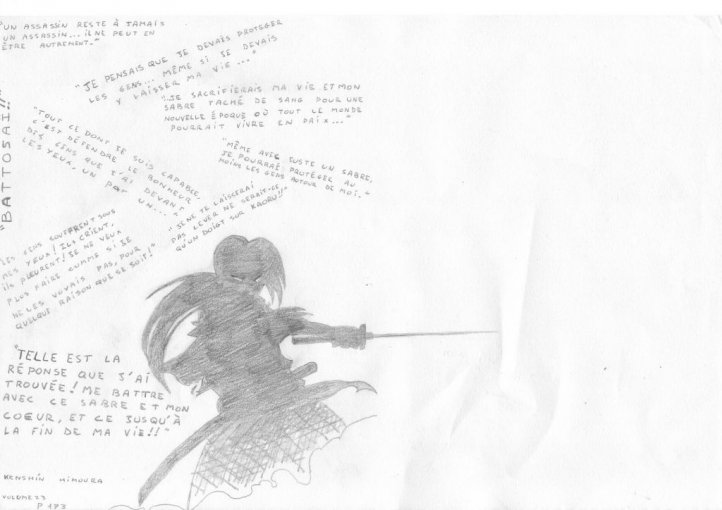 "UN ASSASSIN RESTE À TAMAIS
UN ASSASSIN... IL NE PEUT EN
ÊTRE AUTREMENT."
"JE PENSAIS QUE JE DEVAIS PROTEGER
LES GENS... MÊME SI JE DEVAIS
Y LAISSER MA VIE..."
"JE SACRIFIERAIS MA VIE ET MON
SABRE TACHÉ DE SANG POUR UNE
NOUVELLE ÉPOQUE OÙ TOUT LE MONDE
POURRAIT VIVRE EN PAIX..."
"BATTOSAI!!"
"TOUT CE DONT JE SUIS CAPABLE,
C'EST DÉFENDRE LE BONHEUR
DES GENS QUE J'AI DEVANT
LES YEUX, UN PAR UN..."
"MÊME AVEC JUSTE UN SABRE,
JE POURRAI PROTÉGER AU
MOINS LES GENS AUTOUR DE MOI."
"JE NE TE LAISSERAI
PAS LEVER NE SERAIT-CE
QU'UN DOIGT SUR KAORU!!"
LES GENS SOUFFRENT SOUS
MES YEUX! ILS CRIENT,
ILS PLEURENT! JE NE VEUX
PLUS FAIRE COMME SI JE
NE LES VOYAIS PAS, POUR
QUELQUE RAISON QUE SE SOIT!"
"TELLE EST LA
RÉPONSE QUE J'AI
TROUVÉE! ME BATTRE
AVEC CE SABRE ET MON
COEUR, ET CE JUSQU'À
LA FIN DE MA VIE!!"
KENSHIN HIMOURA
VOLUME 23
P 173